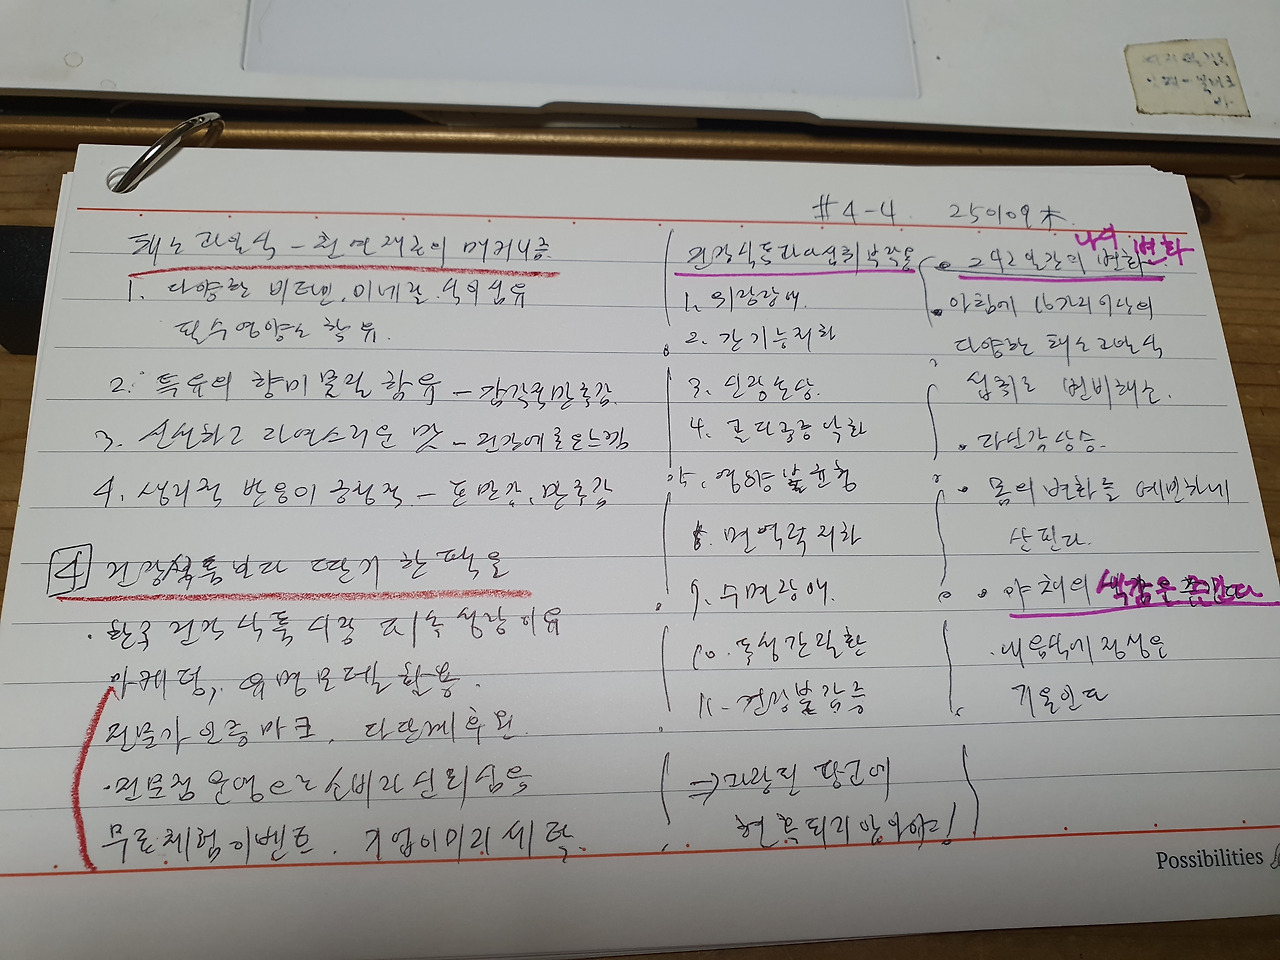 #4-4 250109木
채소과일식 - 천연재료의 메커니즘
1. 다양한 비타민, 미네랄, 식이섬유
필수영양소 함유.
2. 특유의 향미 물질 함유 - 감각적만족감.
3. 신선하고 자연스러운 맛 - 건강에 좋은느낌
4. 생리적 반응이 긍정적 - 포만감, 만족감
4 건강식품보다 딸기 한 팩을
· 한국 건강 식품 시장 지속 성장 이유
마케팅, 유명모델 활용.
전문가 인증 마크, 다단계 후원
· 전문점 운영으로 소비자 신뢰심음
무료체험이벤트. 기업이미지 세탁.
건강식품과다섭취 부작용
1. 위장장애.
2. 간기능저하
3. 신장손상.
4. 골다공증 악화
5. 영양불균형
8. 면역력 저하
9. 수면장애.
10. 독성간질환
11. 건강불감증
⇒ 과장된 광고에
현혹되지 않아야지!
· 292일간의 나의 변화 변화
· 아침에 16가지 이상의
다양한 채소과일식
섭취로 변비해소.
· 자신감 상승.
· 몸의 변화를 예민하게
살핀다.
· 야채의 색감을 즐긴다
· 내음식에 정성을
기울인다
Possibilities